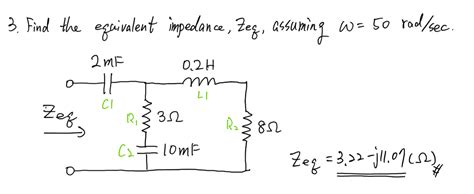 3. Find the equivalent impedance, Zeq, assuming ω= 50 rad/sec.
2mF
0.2H
C1
L1
Zeq
R1
3Ω
R2
8Ω
C2
10mF
Zeq = 3.22-j11.07(Ω)